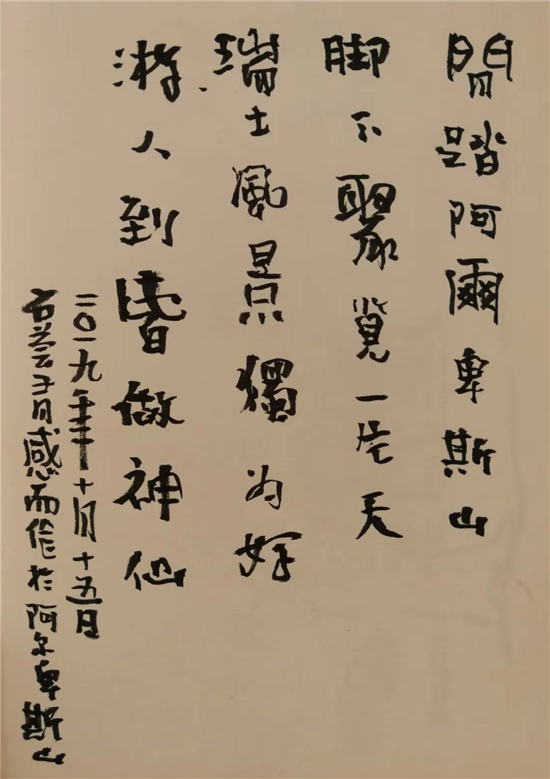 閒踏阿爾卑斯山
脚下聚覽一片天
瑞士風景獨为好
游人到皆做神仙
二〇一九年十月十五日
感而作於阿尔卑斯山